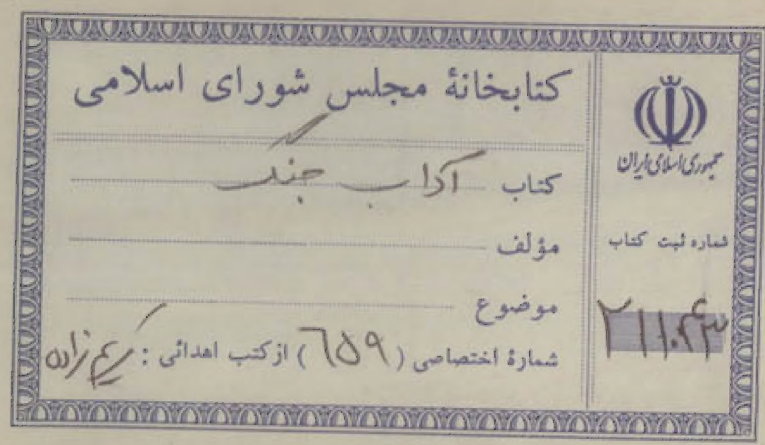 کتابخانهٔ مجلس شورای اسلامی
کتاب آداب جنگ
مؤلف
موضوع
شمارهٔ اختصاصی ( ۶۵۹ ) از کتب اهدائی : کریم زاده
جمهوری اسلامی ایران
شماره ثبت کتاب
۲۱۱۰۴۳